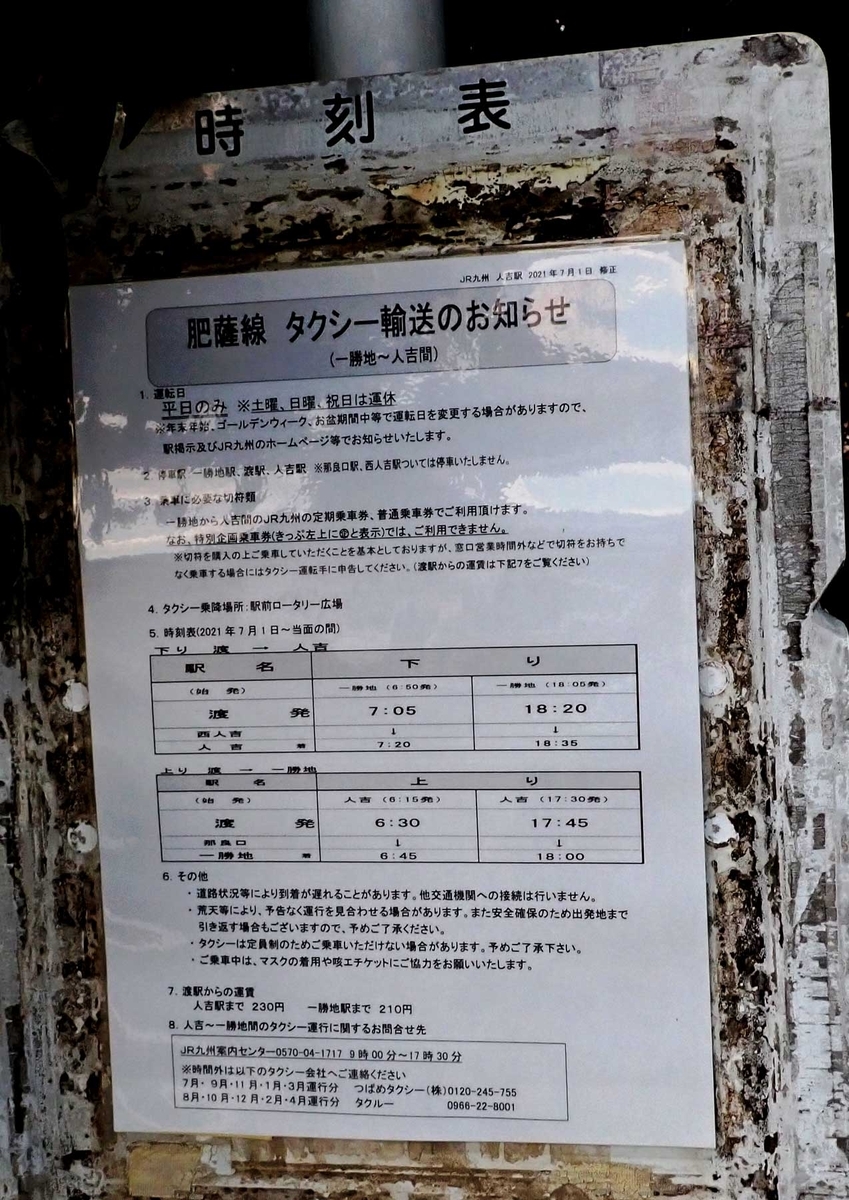 時刻表
JR九州 人吉駅 2021年7月1日 修正
肥薩線 タクシー輸送のお知らせ
(一勝地～人吉間)
1. 運転日
平日のみ ※土曜、日曜、祝日は運休
※年末年始、ゴールデンウィーク、お盆期間中等で運転日を変更する場合がありますので、
駅掲示及びJR九州のホームページ等でお知らせいたします。
2 停車駅 一勝地駅、渡駅、人吉駅 ※那良口駅、西人吉駅ついては停車いたしません。
3 乗車に必要な切符類
一勝地から人吉間のJR九州の定期乗車券、普通乗車券でご利用頂けます。
なお、特別企画乗車券(きっぷ左上に㊕と表示)では、ご利用できません。
※切符を購入の上ご乗車していただくことを基本としておりますが、窓口営業時間外などで切符をお持ちで
なく乗車する場合にはタクシー運転手に申告してください。(渡駅からの運賃は下記7をご覧ください)
4. タクシー乗降場所:駅前ロータリー広場
5. 時刻表(2021年7月1日～当面の間)
下り 渡 → 人吉
駅名 下り
(始発) 一勝地(6:50発) 一勝地(18:05発)
渡 発 7:05 18:20
西人吉 ↓ ↓
人吉 着 7:20 18:35
上り 渡 → 一勝地
駅名 上り
(始発) 人吉(6:15発) 人吉(17:30発)
渡 発 6:30 17:45
那良口 ↓ ↓
一勝地 着 6:45 18:00
6. その他
・道路状況等により到着が遅れることがあります。他交通機関への接続は行いません。
・荒天等により、予告なく運行を見合わせる場合があります。また安全確保のため出発地まで
引き返す場合もございますので、予めご了承ください。
・タクシーは定員制のためご乗車いただけない場合があります。予めご了承下さい。
・ご乗車中は、マスクの着用や咳エチケットにご協力をお願いいたします。
7. 渡駅からの運賃
人吉駅まで 230円 一勝地駅まで 210円
8. 人吉～一勝地間のタクシー運行に関するお問合せ先
JR九州案内センター0570-04-1717 9時00分～17時30分
※時間外は以下のタクシー会社へご連絡ください
7月・9月・11月・1月・3月運行分 つばめタクシー(株)0120-245-755
8月・10月・12月・2月・4月運行分 タクルー 0966-22-8001